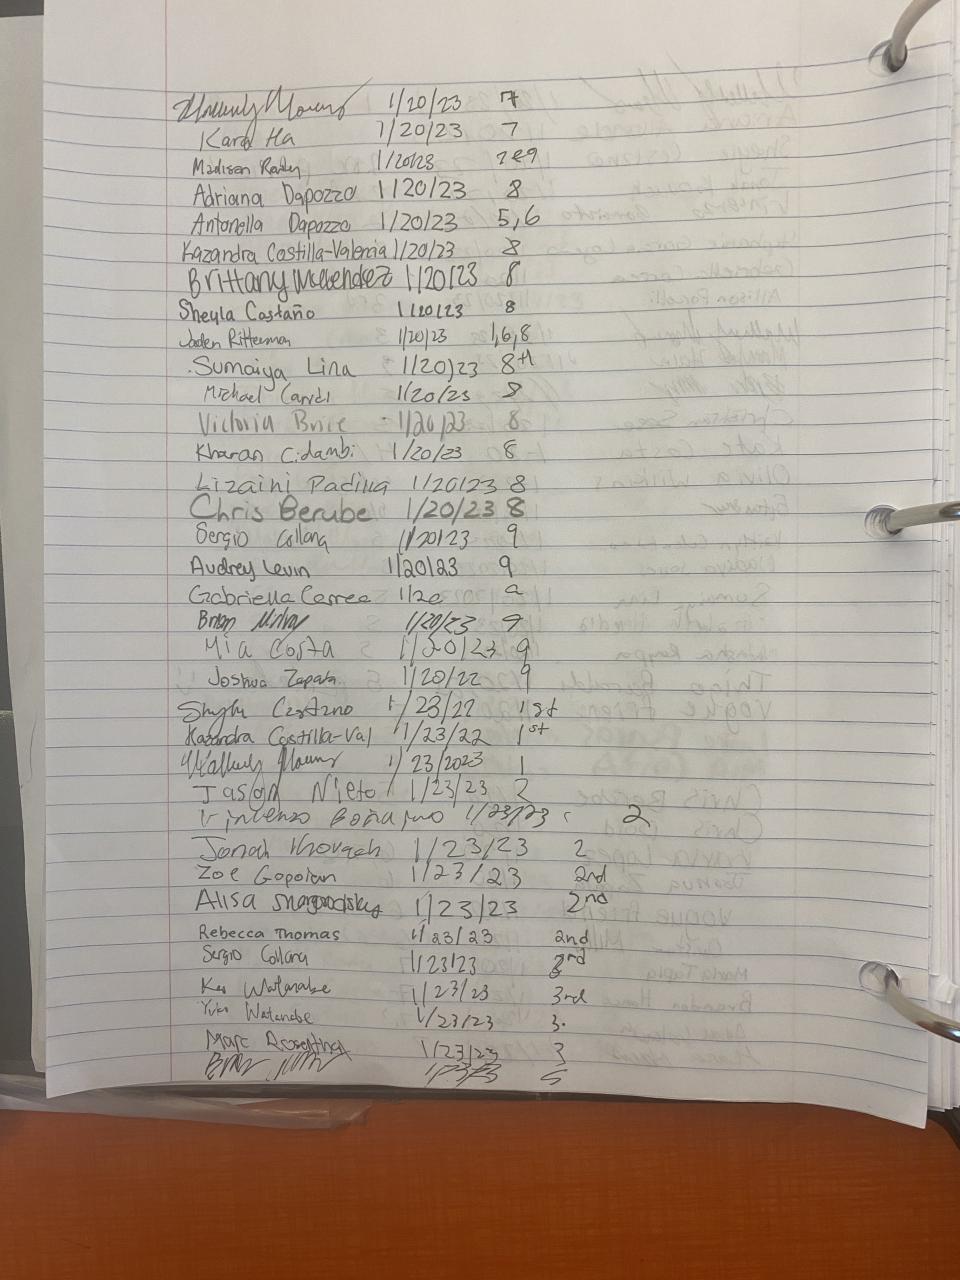 1/20/23 7
Kara Ha 1/20/23 7
Madison 1/20/23 7 & 9
Adriana Dapozzo 1/20/23 8
Antonella Dapozzo 1/20/23 5,6
Kazandra Costilla-Valencia 1/20/23 8
Brittany Melendez 1/20/23 8
Sheyla Castaño 1/20/23 8
Jaden Ritterman 1/20/23 1,6,8
Sumaiya Lina 1/20/23 8th
Michael 1/20/23 8
Victoria Brice 1/20/23 8
Kharan Cidambi 1/20/23 8
Lizaini Padilla 1/20/23 8
Chris Berube 1/20/23 8
Sergio Collana 1/20/23 9
Audrey Levin 1/20/23 9
Gabriella Correa 1/20 9
Brian 1/20/23 9
Mia Costa 1/20/23 9
Joshua Zapata 1/20/22 9
Castano 1/23/22 1st
Kazandra Costilla-Val 1/23/22 1st
1/23/2023 1
Jason Nieto 1/23/23 2
Vincenzo 1/23/23 2
Jonah 1/23/23 2
Zoe Gopoian 1/23/23 2nd
Alisa 1/23/23 2nd
Rebecca Thomas 1/23/23 2nd
Sergio Collana 1/23/23 3rd
Watanabe 1/23/23 3rd
Watanabe 1/23/23 3.
Marc Rosenthal 1/23/23 3